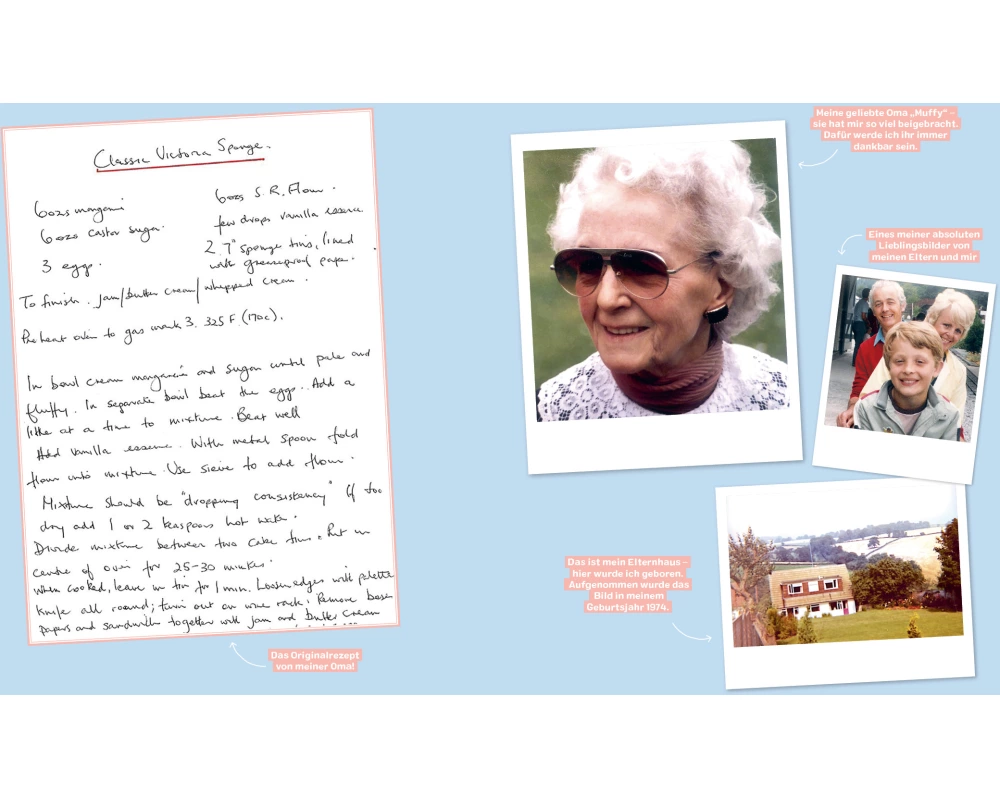 Classic Victoria Sponge.
6ozs margarine
6ozs castor sugar.
3 eggs.
6ozs S.R. Flour.
few drops vanilla essence.
2 7" sponge tins, lined
with greaseproof paper.
To finish. Jam/butter cream/whipped cream.
Preheat oven to gas mark 3. 325F (170c).
In bowl cream margarine and sugar until pale and
fluffy. In separate bowl beat the eggs. Add a
little at a time to mixture. Beat well
Add vanilla essence. With metal spoon fold
flour into mixture. Use sieve to add flour.
Mixture should be "dropping consistency" If too
dry add 1 or 2 teaspoons hot water.
Divide mixture between two cake tins. Put in
centre of oven for 25-30 minutes.
When cooked, leave in tin for 1 min. Loosen edges with palette
knife all round; turn out on wire rack. Remove base
papers and sandwich together with jam and butter cream
Das Originalrezept
von meiner Oma!
Meine geliebte Oma „Muffy“ –
sie hat mir so viel beigebracht.
Dafür werde ich ihr immer
dankbar sein.
Eines meiner absoluten
Lieblingsbilder von
meinen Eltern und mir
Das ist mein Elternhaus –
hier wurde ich geboren.
Aufgenommen wurde das
Bild in meinem
Geburtsjahr 1974.